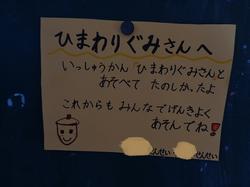 ひまわりぐみさんへ
いっしゅうかん ひまわりぐみさんと
あそべて たのしかったよ
これからも みんなでげんきよく
あそんでね!
せんせい せんせい